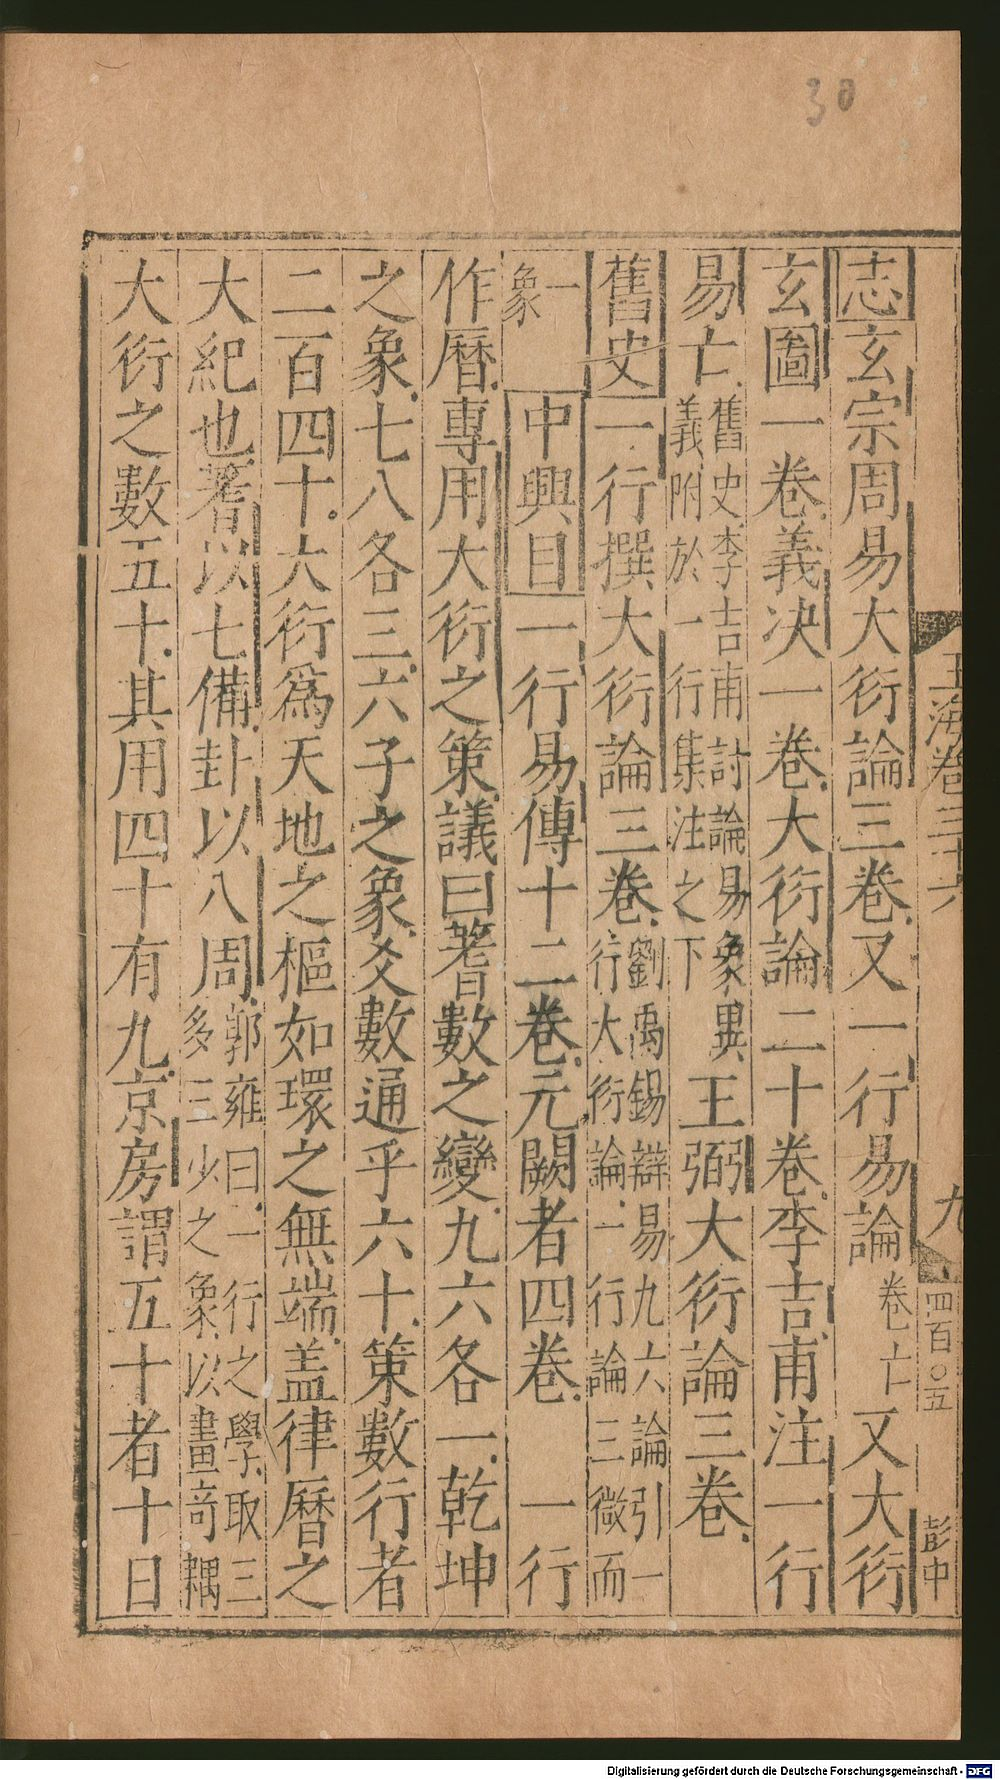 30
玉海卷三十六 九 四百〇五 彭中
志玄宗周易大衍論三卷又一行易論卷亡又大衍
玄圖一卷義決一卷大衍論二十卷李吉甫注一行
易亡舊史李吉甫討論易象異義附於一行集注之下王弼大衍論三卷
舊史一行撰大衍論三卷劉禹錫辯易九六論引一行大衍論一行論三微而
一象中興目一行易傳十二卷元闕者四卷 一行
作曆專用大衍之策議曰蓍數之變九六各一乾坤
之象七八各三六子之象爻數通乎六十策數行者
二百四十大衍為天地之樞如環之無端盖律曆之
大紀也蓍以七備卦以八周郭雍曰一行之學取三多三少之象以畫奇耦
大衍之數五十其用四十有九京房謂五十者十日
Digitalisierung gefördert durch die Deutsche Forschungsgemeinschaft - DFG